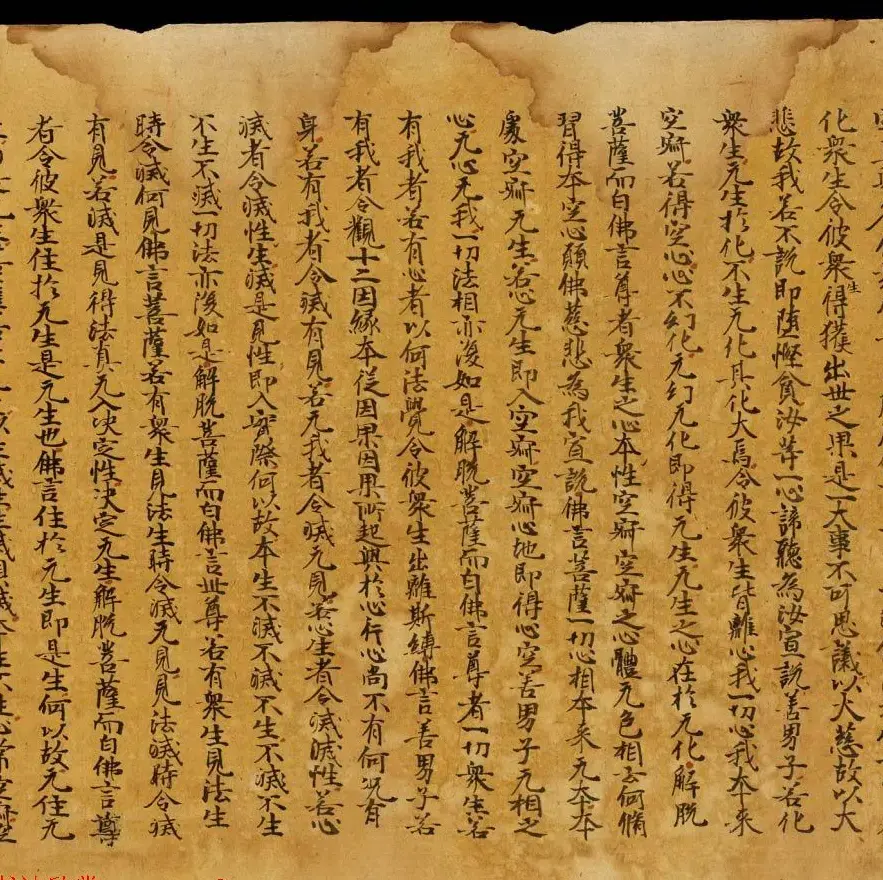 化衆生令彼衆生得獲出世之果是一大事不可思議以大慈故以大
悲故我若不說即墮慳貪汝等一心諦聽為汝宣說善男子若化
衆生无生於化不生无化其化大焉令彼衆生皆離心我一切心我本來
空寂若得空心心不幻化无幻无化即得无生无生之心在於无化解脫
菩薩而白佛言尊者衆生之心本性空寂空寂之心體无色相云何脩
習得本空心願佛慈悲為我宣說佛言菩薩一切心相本來无本本
處空寂无生若心无生即入空寂空寂心地即得心空善男子无相之
心无心无我一切法相亦復如是解脫菩薩而白佛言尊者一切衆生若
有我者若有心者以何法覺令彼衆生出離斯縛佛言善男子若
有我者令觀十二因緣本從因果因果所起興於心行心尚不有何況有
身若有我者令滅有見若无我者令滅无見若心生者令滅滅性若心
滅者令滅性生滅是見性即入實際何以故本生不滅不滅不生不滅不生
不生不滅一切法亦復如是解脫菩薩而白佛言世尊若有衆生見法生
時令滅何見佛言菩薩若有衆生見法生時令滅无見見法滅時令滅
有見若滅是見得法真无入決定性決定无生解脫菩薩而白佛言尊
者令彼衆生住於无生是无生也佛言住於无生即是生何以故无住无